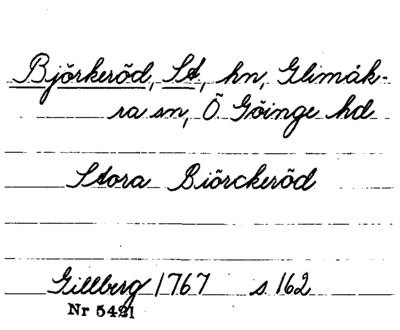 Björkeröd, St, hn, Glimåk-
ra sn, Ö Göinge hd
Stora Biörckeröd
Gillberg 1767 s. 162
Nr 5421